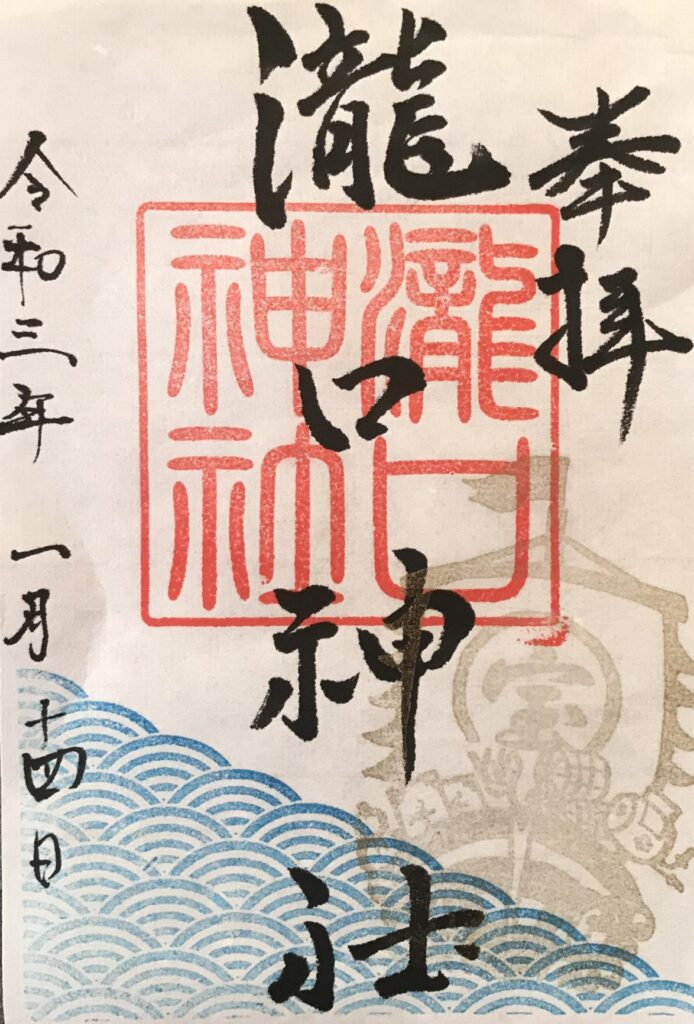 奉拝
瀧口神社
瀧口
神社
宝
令和三年 一月十四日